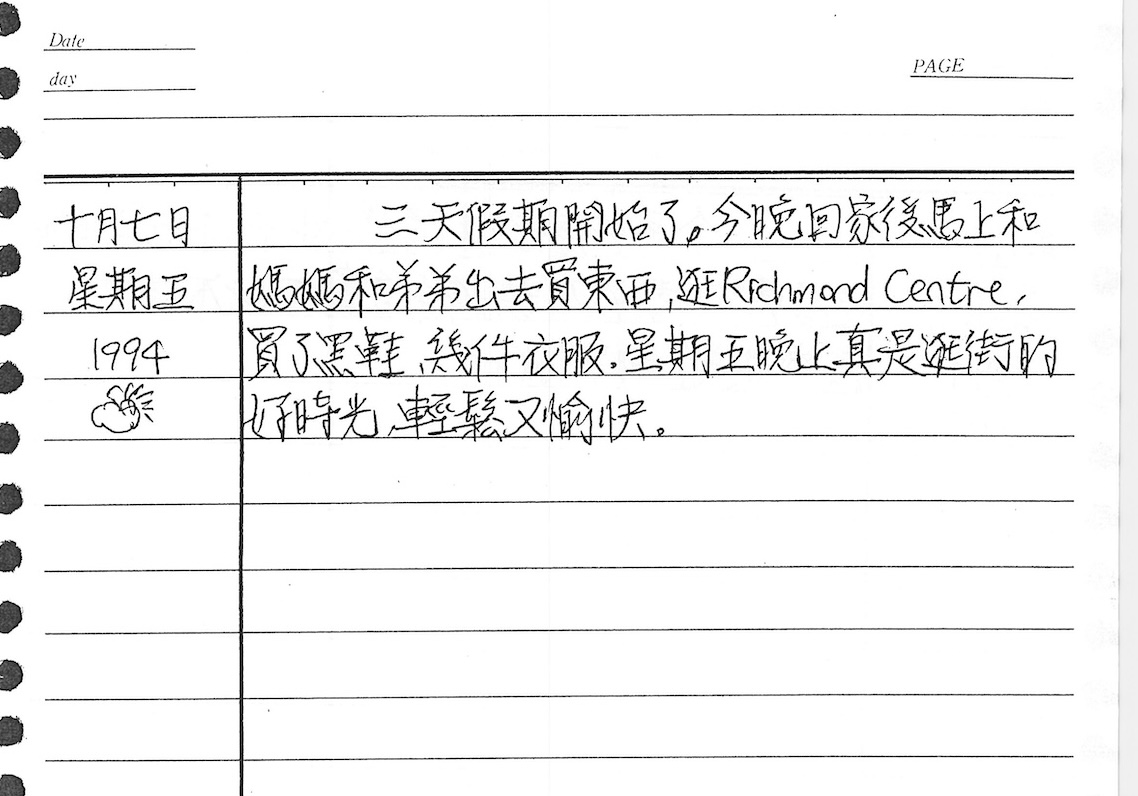 Date
day
PAGE
十月七日
星期五
1994
三天假期開始了。今晚回家後馬上和
媽媽和弟弟出去買東西,逛Richmond Centre,
買了黑鞋、幾件衣服.星期五晚上真是逛街的
好時光、輕鬆又愉快。